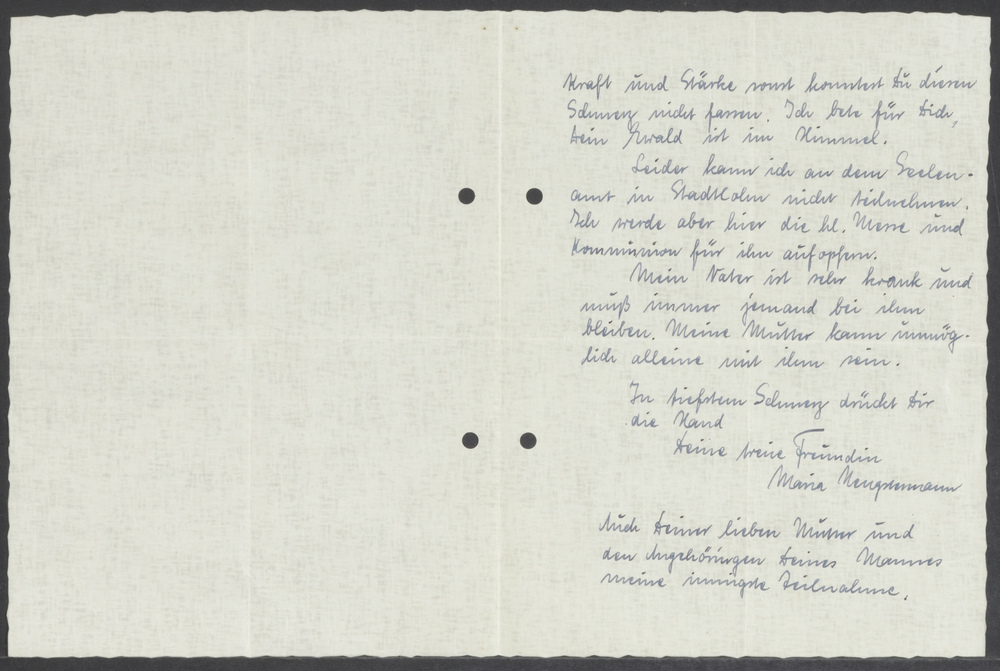 Kraft und Stärke sonst konntest Du diesen
Schmerz nicht fassen. Ich bete für Dich,
Dein Ewald ist im Himmel.
Leider kann ich an dem Seelen-
amt in Stadtlohn nicht teilnehmen.
Ich werde aber hier die hl. Messe und
Kommunion für ihn aufopfern.
Mein Vater ist sehr krank und
muß immer jemand bei ihm
bleiben. Meine Mutter kann unmög-
lich alleine mit ihm sein.
In tiefstem Schmerz drückt Dir
die Hand
Deine treue Freundin
Maria Hengstermann
Auch Deiner lieben Mutter und
den Angehörigen Deines Mannes
meine innigste Teilnahme.